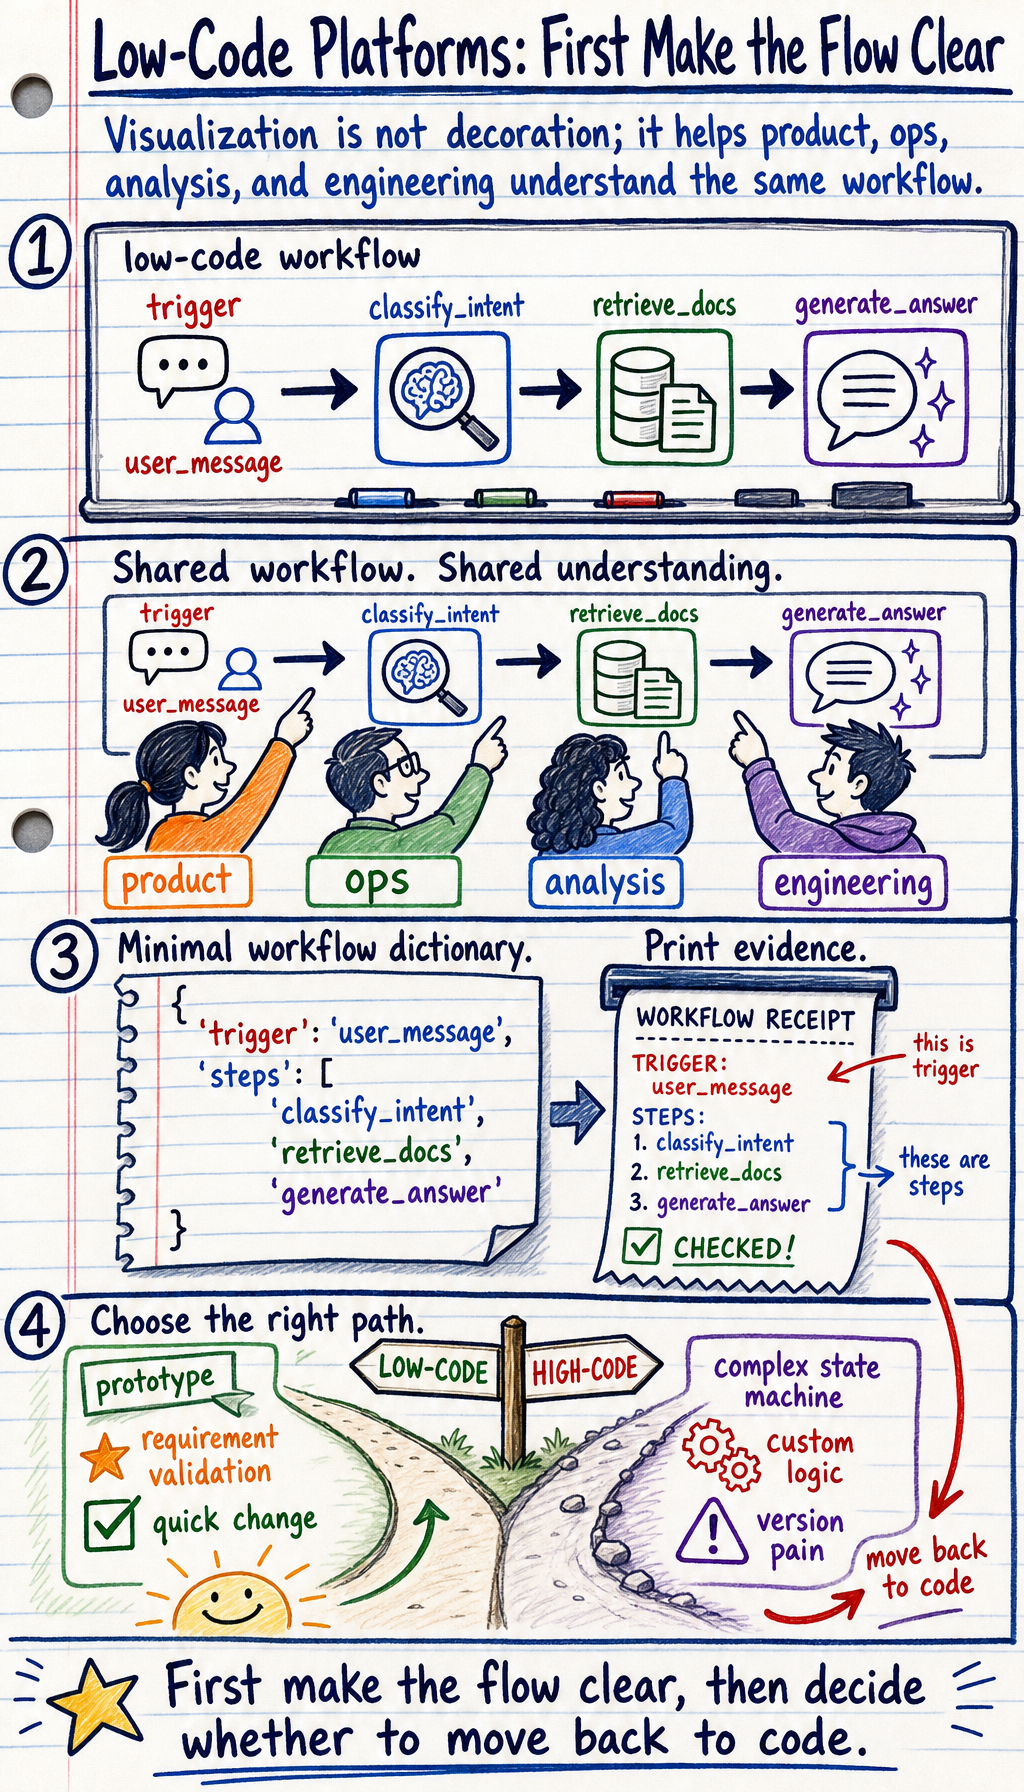 Low-Code Platforms: First Make the Flow Clear
Visualization is not decoration; it helps product, ops,
analysis, and engineering understand the same workflow.
1
low-code workflow
trigger
user_message
classify_intent
retrieve_docs
generate_answer
2
Shared workflow. Shared understanding.
trigger
user_message
classify_intent
retrieve_docs
generate_answer
product
ops
analysis
engineering
3
Minimal workflow dictionary.
{
'trigger': 'user_message',
'steps': [
'classify_intent',
'retrieve_docs',
'generate_answer'
}
Print evidence.
WORKFLOW RECEIPT
TRIGGER:
user_message
STEPS:
1. classify_intent
2. retrieve_docs
3. generate_answer
CHECKED!
this is
trigger
these are
steps
4
Choose the right path.
prototype
requirement
validation
quick change
LOW-CODE
HIGH-CODE
complex state
machine
custom
logic
!
version
pain
move back
to code
First make the flow clear, then decide
whether to move back to code.